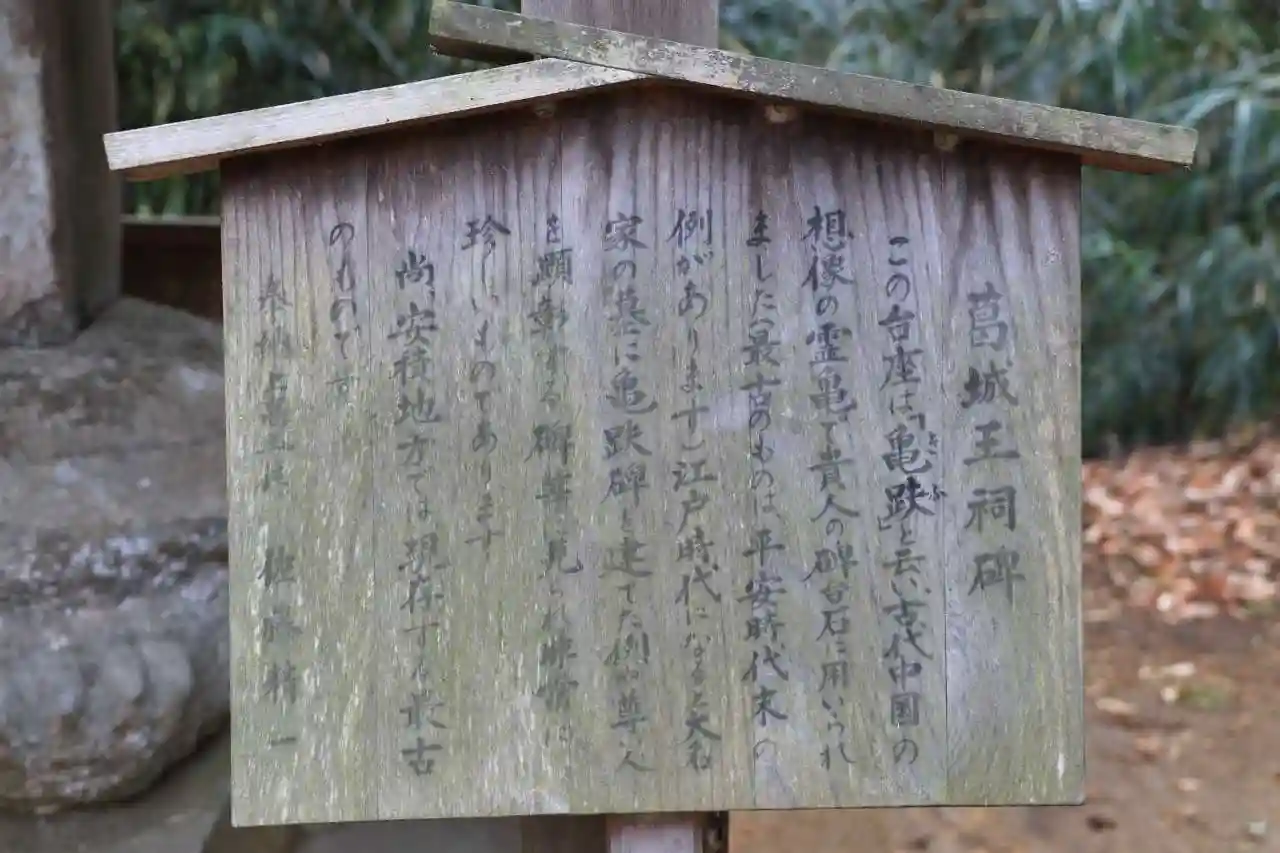 葛城王祠碑
この台座は「亀趺」と云い、古代中国の
想像の霊亀で貴人の碑台石に用いられ
ました(最古のものは、平安時代末の
例があります)江戸時代になると大名
家の墓に亀趺碑と建てた例や尊人
を顕彰する碑等に見られ非常に
珍しいものであります
尚、安積地方では現存する最古
のものです
佐藤精一